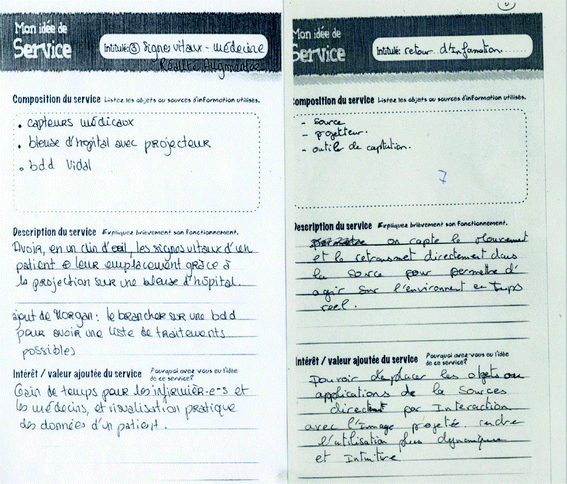 Mon idée de
Service
Intitulé: ③ Signes vitaux - médecine
Réalité Augmentée
Composition du service Listez les objets ou sources d'information utilisés.
• capteurs médicaux
• blouse d'hôpital avec projecteur
• bdd Vidal
Description du service Expliquez brièvement son fonctionnement.
Avoir, en un clin d'œil, les signes vitaux d'un
patient à leur emplacement grâce à
la projection sur une blouse d'hôpital.
ajout de Morgan: le brancher sur une bdd
pour avoir une liste de traitements
possibles
Intérêt / valeur ajoutée du service Pourquoi avez-vous eu l'idée
de ce service?
Gain de temps pour les infirmièr-e-s et
les médecins, et visualisation pratique
des données d'un patient.
Mon idée de
Service
Intitulé: retour d'Information
Composition du service Listez les objets ou sources d'information utilisés.
- source
- projetteur.
- outils de captation.
7
Description du service Expliquez brièvement son fonctionnement.
on capte le mouvement
et le retransmet directement dans
la source pour permettre d'
agir sur l'environment en temps
réel.
Intérêt / valeur ajoutée du service Pourquoi avez-vous eu l'idée
de ce service?
Pouvoir déplacer les objet ou
applications de la Sources
direct par Interaction
avec l'Image projeté. rendre
l'utilisation plus dynamique
et Intuitive